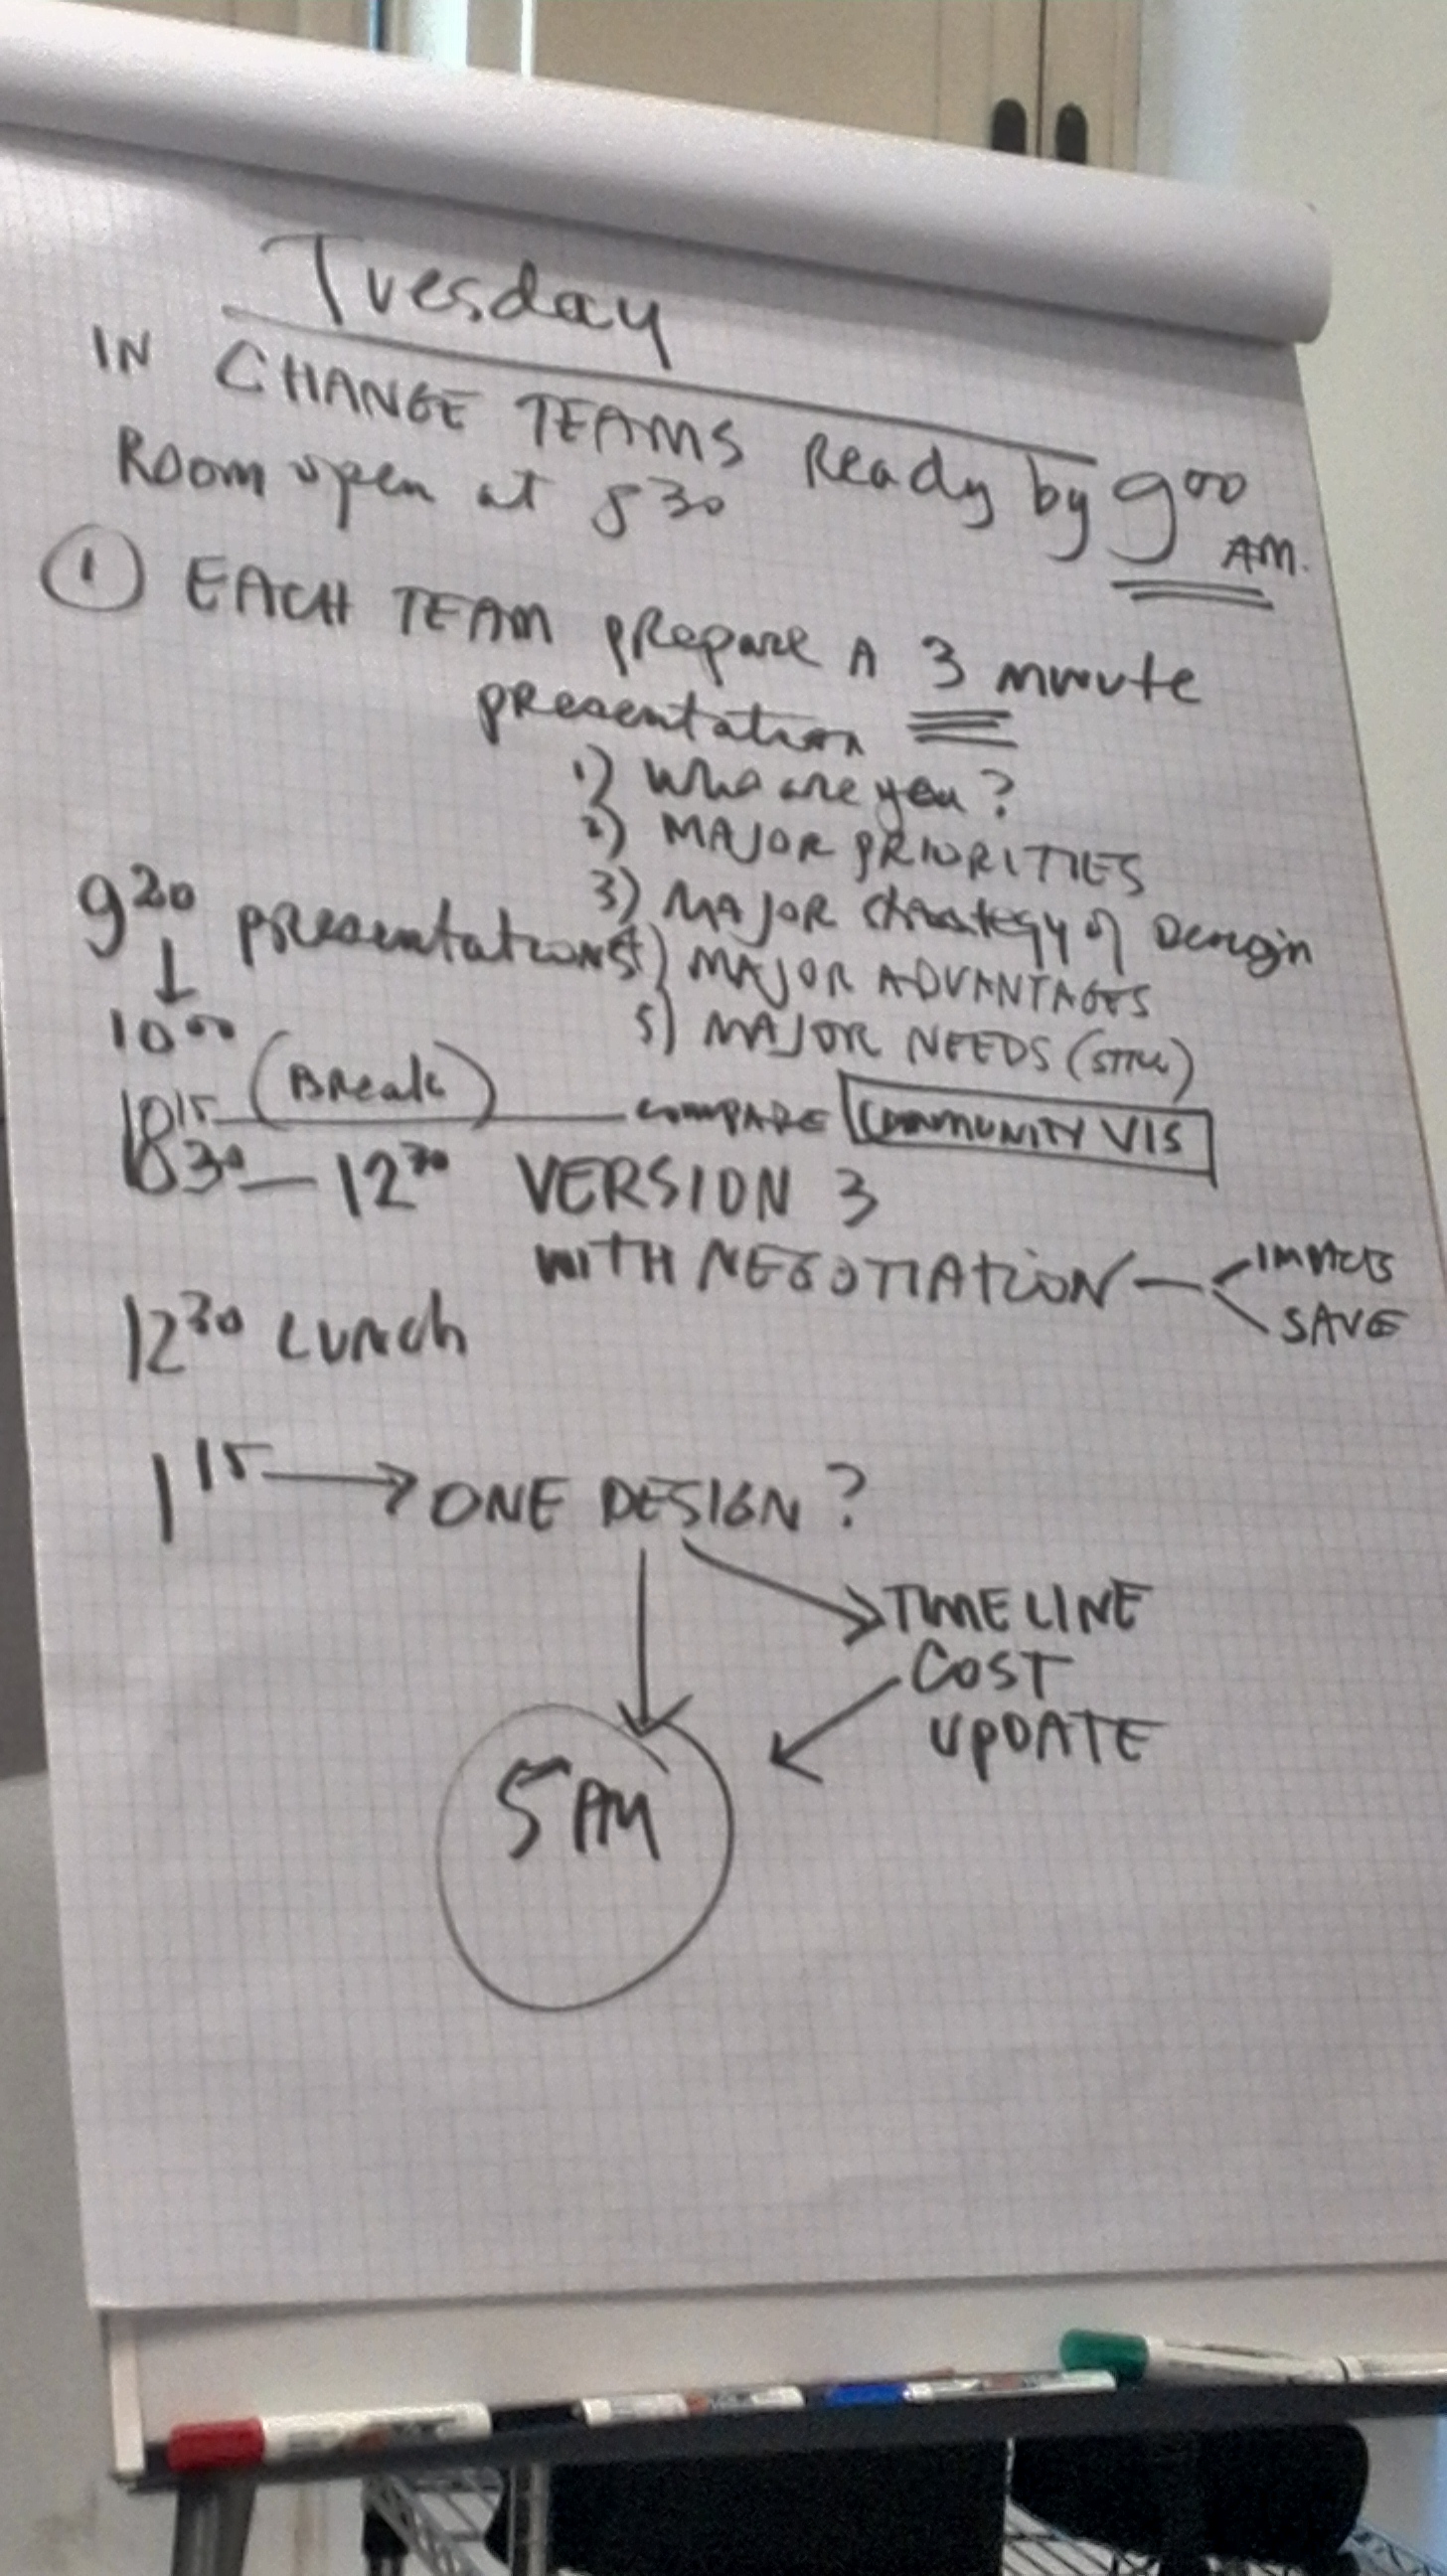 Tuesday
IN CHANGE TEAMS Ready by 9⁰⁰ AM.
Room open at 8³⁰
① EACH TEAM prepare A 3 minute
presentation
1) Who are you?
2) MAJOR PRIORITIES
3) MAJOR strategy of Design
9²⁰ presentations 4) MAJOR ADVANTAGES
↓
10⁰⁰ 5) MAJOR NEEDS (STILL)
(Break)
10¹⁵ COMPARE COMMUNITY VIS
10³⁰ — 12³⁰ VERSION 3
WITH NEGOTIATION — IMPACTS
SAVE
12³⁰ LUNCH
1¹⁵ → ONE DESIGN ?
TIMELINE
COST
UPDATE
5 AM